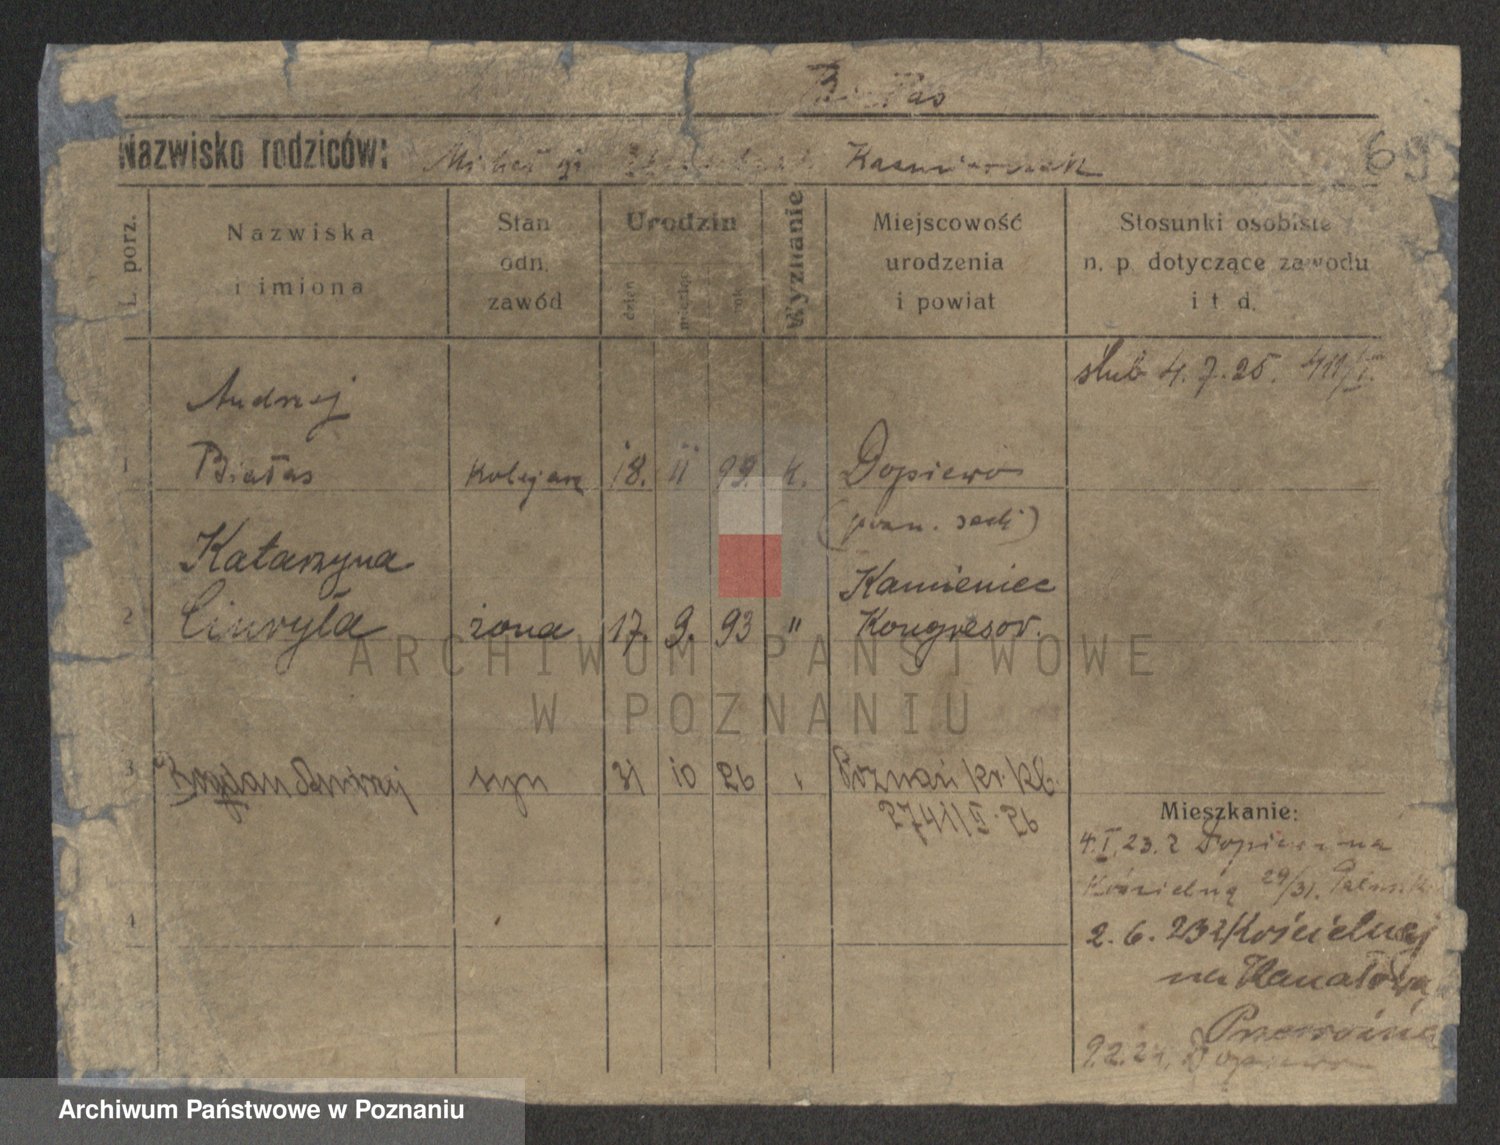 Nazwisko rodziców: Kaźmierczak
69
L. porz.
Nazwiska
i imiona
Stan
odn.
zawód
Urodzin
dzień
miesiąc
rok
Wyznanie
Miejscowość
urodzenia
i powiat
Stosunki osobiste
n. p. dotyczące zawodu
i t d.
ślub 4. 7. 25.
Andrzej
1 Białas kolejarz 18. II 99. k. Dopiewo
Katarzyna
Kamieniec
2 Ciuryła żona 17. 9. 93 " Kongresow.
3 Bogdan Andrzej syn 31 10 26 Poznań
2741/I. 26
4
Mieszkanie:
4. I. 23. z Dopiewa na
Kościelną 29/31.
2. 6. 23 z Kościelnej
na Kanałową
9.2.24. Dopiewo
ARCHIWUM PAŃSTWOWE
W POZNANIU
Archiwum Państwowe w Poznaniu